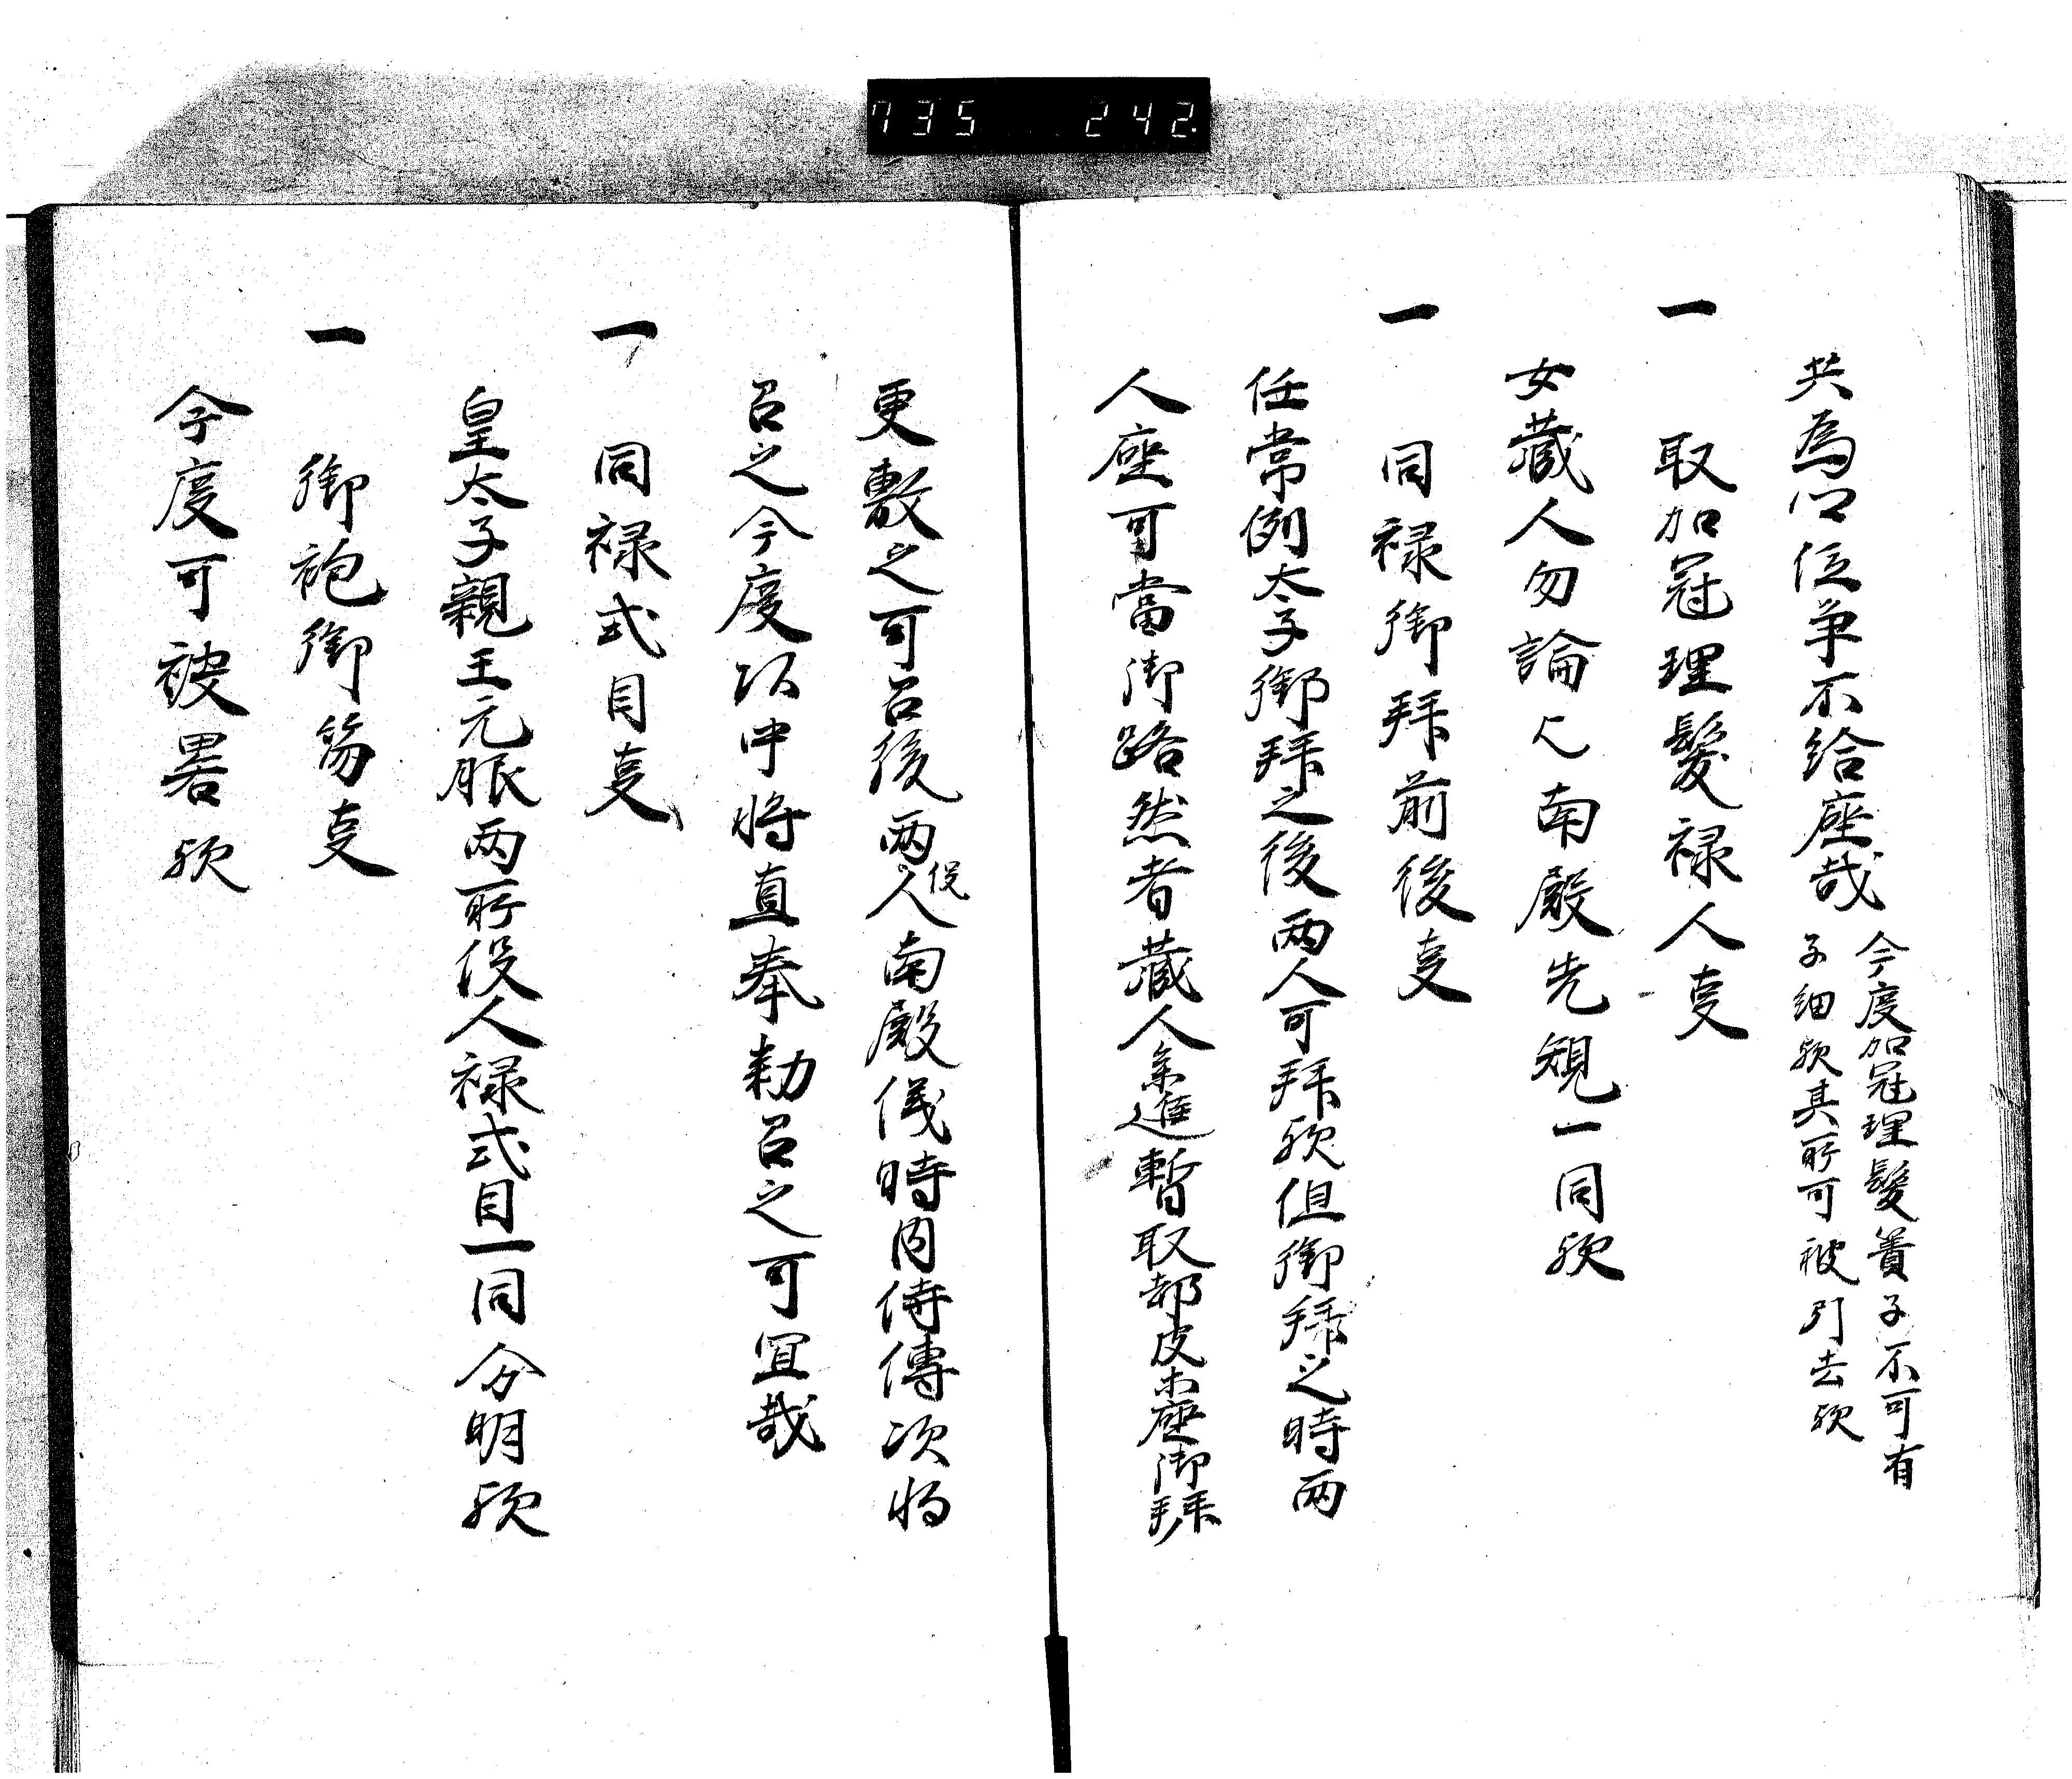 735 242.
共為口位争不給座哉
今度加冠理髪簀子不可有
子細歟其所可被引去歟
一 取加冠理髪禄人叓
女蔵人勿論也南殿先規一同歟
一 同禄御拜前後叓
任常例太子御拜之後両人可拜歟但御拜之時両
人座可當御路然者蔵人参進暫取却皮䒭座御拜
更敷之可召後両人役南殿儀時内侍傳次将
召之今度以中将直奉勅召之可宜哉
一 同禄式目叓
皇太子親王元服両所役人禄式目一同分明歟
一 御袍御笏叓
今度可被畧歟